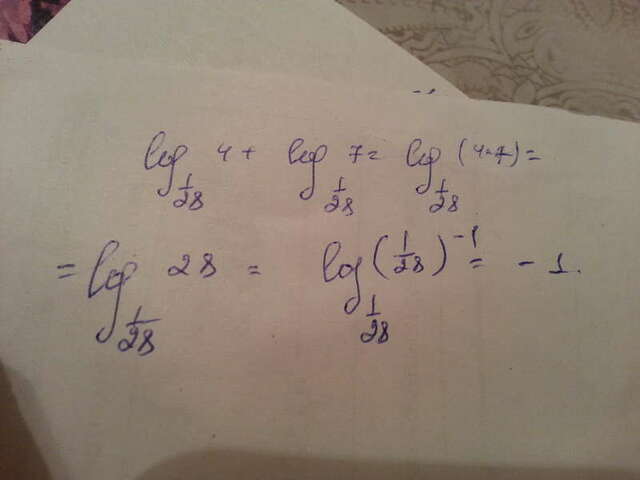 log_{1/28} 4 + log_{1/28} 7 = log_{1/28} (4·7) =
= log_{1/28} 28 = log_{1/28} (1/28)^{-1} = -1.